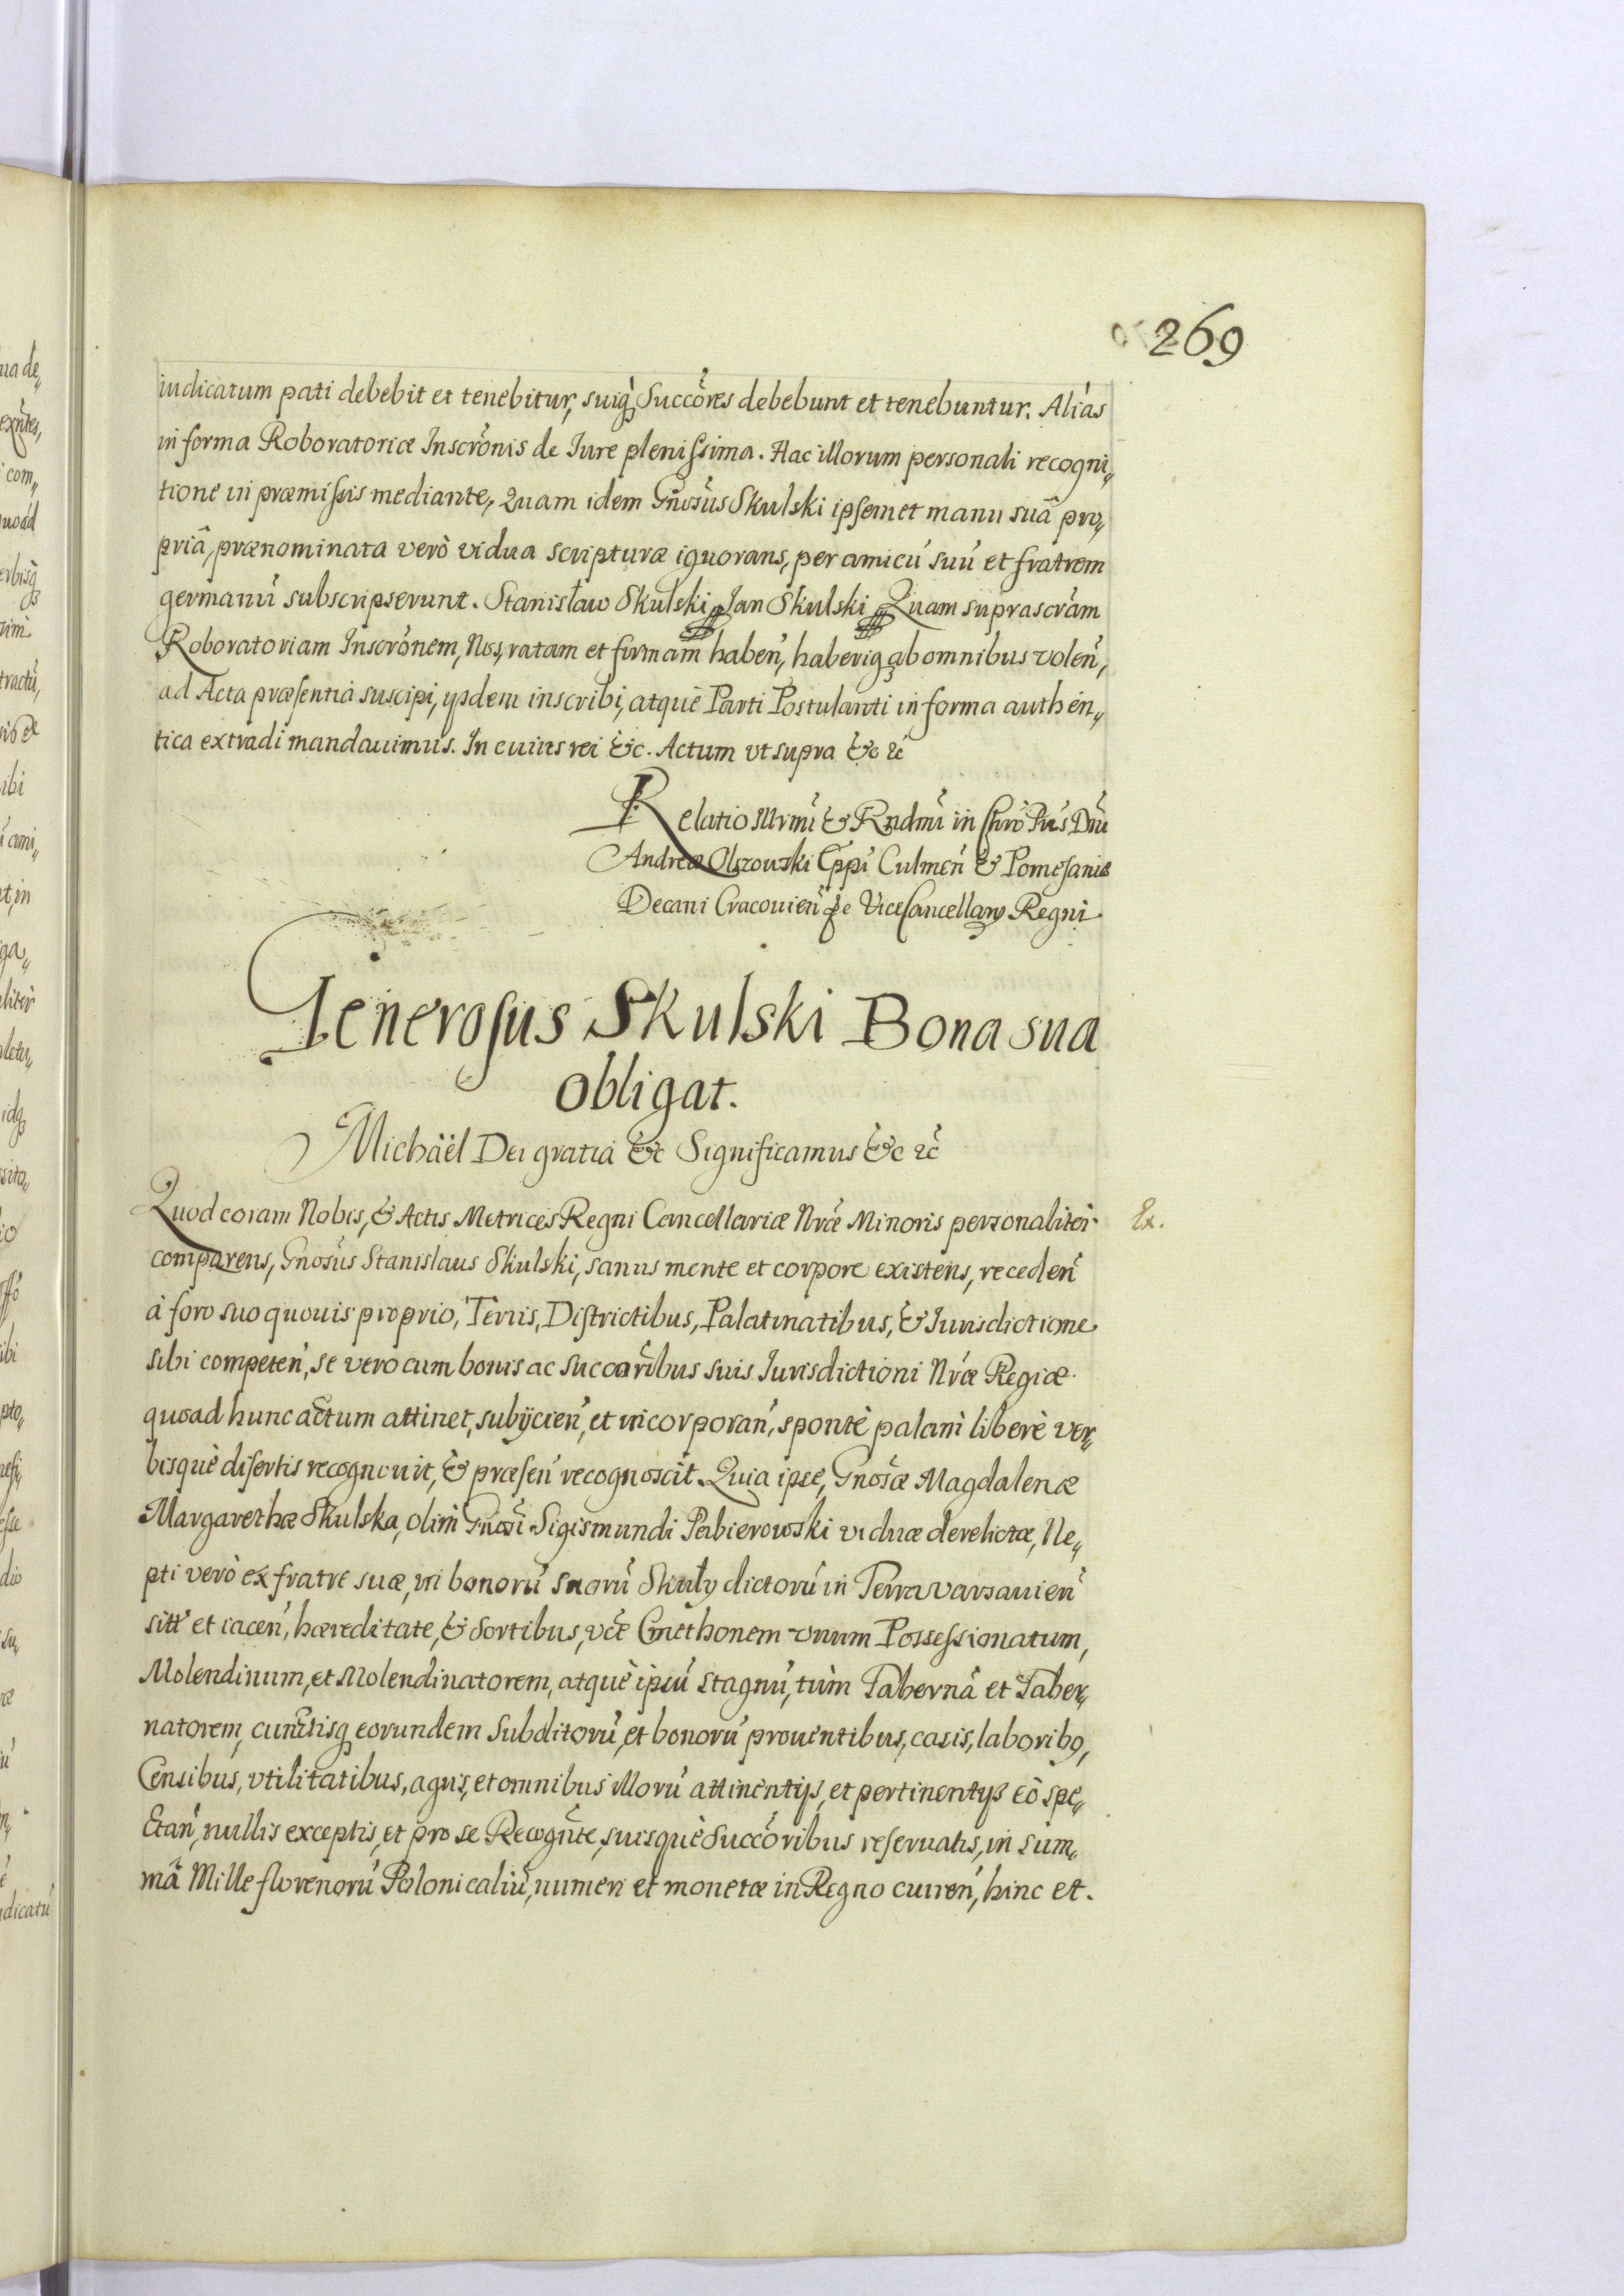 269
iudicatum pati debebit et tenebitur, suiq̃ Succõres debebunt et tenebuntur. Aliàs
in forma Roboratoriæ Inscrõnis de Iure plenissima. Hac illorum personali recogni„
tione in præmissis mediante, Quam idem Gñosus Skulski ipsemet manu suâ pro„
priâ, prænominata verò vidua scripturæ ignorans, per amicũ suũ et fratrem
germanũ subscripserunt. Stanisław Skulski Jan Skulski Quam suprascrãm
Roboratoriam Inscrõnem, Nos, ratam et firmam habeñ, haberiq̃ ab omnibus voleñ,
ad Acta præsentia suscipi, ijsdem inscribi, atquè Parti Postulanti in forma authen„
tica extradi mandauimus. In cuius rei &c. Actum vt supra &c ꝛc̃
Relatio Illrmi & Rndmi in Chrõ Pris Dñi
Andreæ Olszowski Eppi Culmeñ & Pomesaniæ
Decani Cracouieñ Vicecancellary Regni
Generosus Skulski Bona sua
obligat.
Michäel Dei gratia &c Significamus &c ꝛc̃
Quod coram Nobis, & Actis Metrices Regni Cancellariæ Nræ Minoris personaliter Ex.
comparens, Gnosus Stanislaus Skulski, sanus mente et corpore existens, recedeñ
à foro suo quouis proprio, Terris, Districtibus, Palatinatibus, & Iurisdictione
sibi competeñ, se vero cum bonis ac succoribus suis Iurisdictioni Nræ Regiæ
quoad hunc actum attinet, subijcieñ, et incorporañ, spontè palàm liberè ver„
bisquè disertis recognouit, & præseñ recognoscit. Quia ipse, Gnosæ Magdalenæ
Margarethæ Skulska, olim Gnosi Sigismundi Pabierowski viduæ derelictæ, Ne„
pti verò ex fratre suæ, in bonorũ suorũ Skuly dictorũ in Terra varsauieñ
sitt̃ et iaceñ, hæreditate, & Sortibus, vc̃t Cmethonem vnum Possessionatum,
Molendinum, et Molendinatorem, atquè ipsũ stagnũ, tùm Tabernâ et Taber„
natorem, cunctisq̃ eorundem Subditorũ, et bonorũ prouentibus, casis, laboribꝯ,
Censibus, vtilitatibus, agris, et omnibus illorũ attinentijs, et pertinentijs eò spe„
ctañ, nullis exceptis, et pro se Recogñte, suisquè Succoribus reseruatis, in sum„
mâ Mille florenorũ Polonicaliũ, numeri et monetæ in Regno curreñ, hinc et